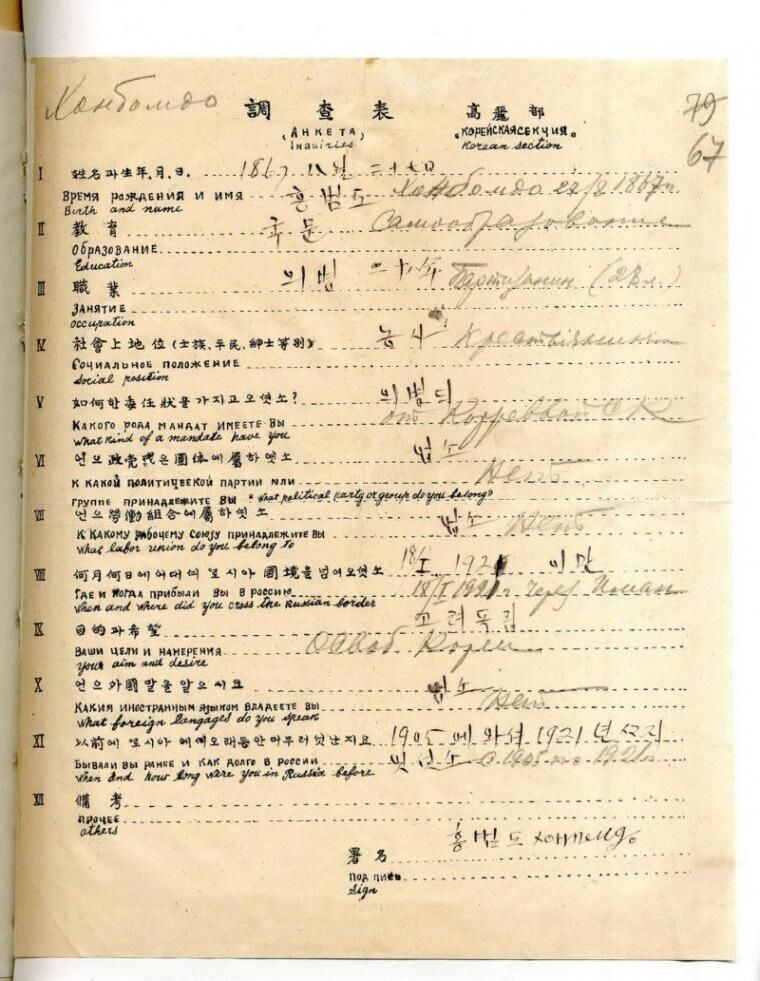 Ханбомдо 調查表 高麗部 79
АНКЕТА „КОРЕЙСКАЯ СЕКЦИЯ„ 67
Inquiries Korean section
I 姓名과生年,月,日. 1867 八月 二十七日
ВРЕМЯ РОЖДЕНИЯ И ИМЯ 홍범도 Ханбомдо 27/8 1867г.
Birth and name
II 教育 국문 Самообразование
ОБРАЗОВАНИЕ
Education
III 職業 의병 Партизан
ЗАНЯТИЕ
occupation
IV 社會上地位(士族、平民、紳士等別) 농사 Крестьянин
СОЦИАЛЬНОЕ ПОЛОЖЕНИЕ
Social position
V 如何한委任狀을가지고오셧소? 의병듸
КАКОГО РОДА МАНДАТ ИМЕЕТЕ ВЫ от
what kind of a mandate have you
VI 언으政党或은團体에屬하엿소 업소
К КАКОЙ ПОЛИТИЧЕСКОЙ ПАРТИИ ИЛИ Нет
ГРУППЕ ПРИНАДЛЕЖИТЕ ВЫ "what political party or group do you belong"
VII 언으勞働組合에屬하엿소 업소 Нет
К КАКОМУ РАБОЧЕМУ СОЮЗУ ПРИНАДЛЕЖИТЕ ВЫ
what labor union do you belong to
VIII 何月何日에어대여로시아國境을넘어오셧소 18/I 1921 이만
ГДЕ И КОГДА ПРИБЫЛИ ВЫ В РОССИЮ 18/I 1921 г. через Иман
when and where did you cross the Russian border
IX 目的과希望 고려독립
ВАШИ ЦЕЛИ И НАМЕРЕНИЯ Освоб. Кореи
your aim and desire
X 언으外國말을알으시요 업소
КАКИМ ИНОСТРАННЫМ ЯЗЫКОМ ВЛАДЕЕТЕ ВЫ Нет
what foreign langages do you speak
XI 以前에로시아에여오래동안머무러 1905 에와셔 1921 년
БЫВАЛИ ВЫ РАНЕЕ И КАК ДОЛГО В РОССИИ с 1905 по 1921г.
when and how long were you in Russia before
XII 備考
ПРОЧЕЕ
others
署名 홍범도
ПОДПИСЬ
Sign